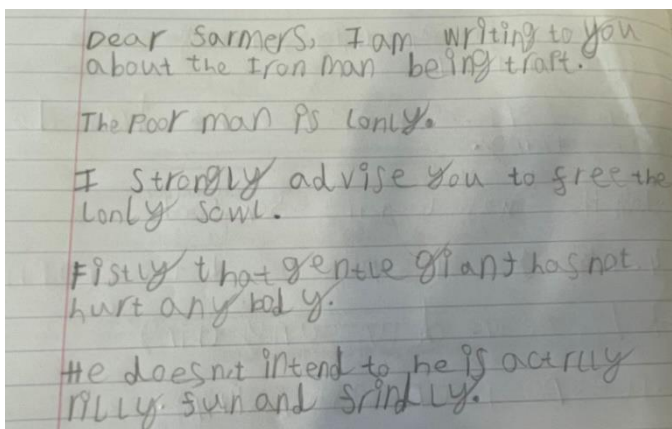 Dear sarmers, I am writing to you
about the Iron man being trapt.
The Poor man is lonly.
I strongly advise you to free the
lonly sowl.
Fistly that gentle giant has not
hurt any body.
He doesn't intend to he is actrlly
rilly fun and frindly.